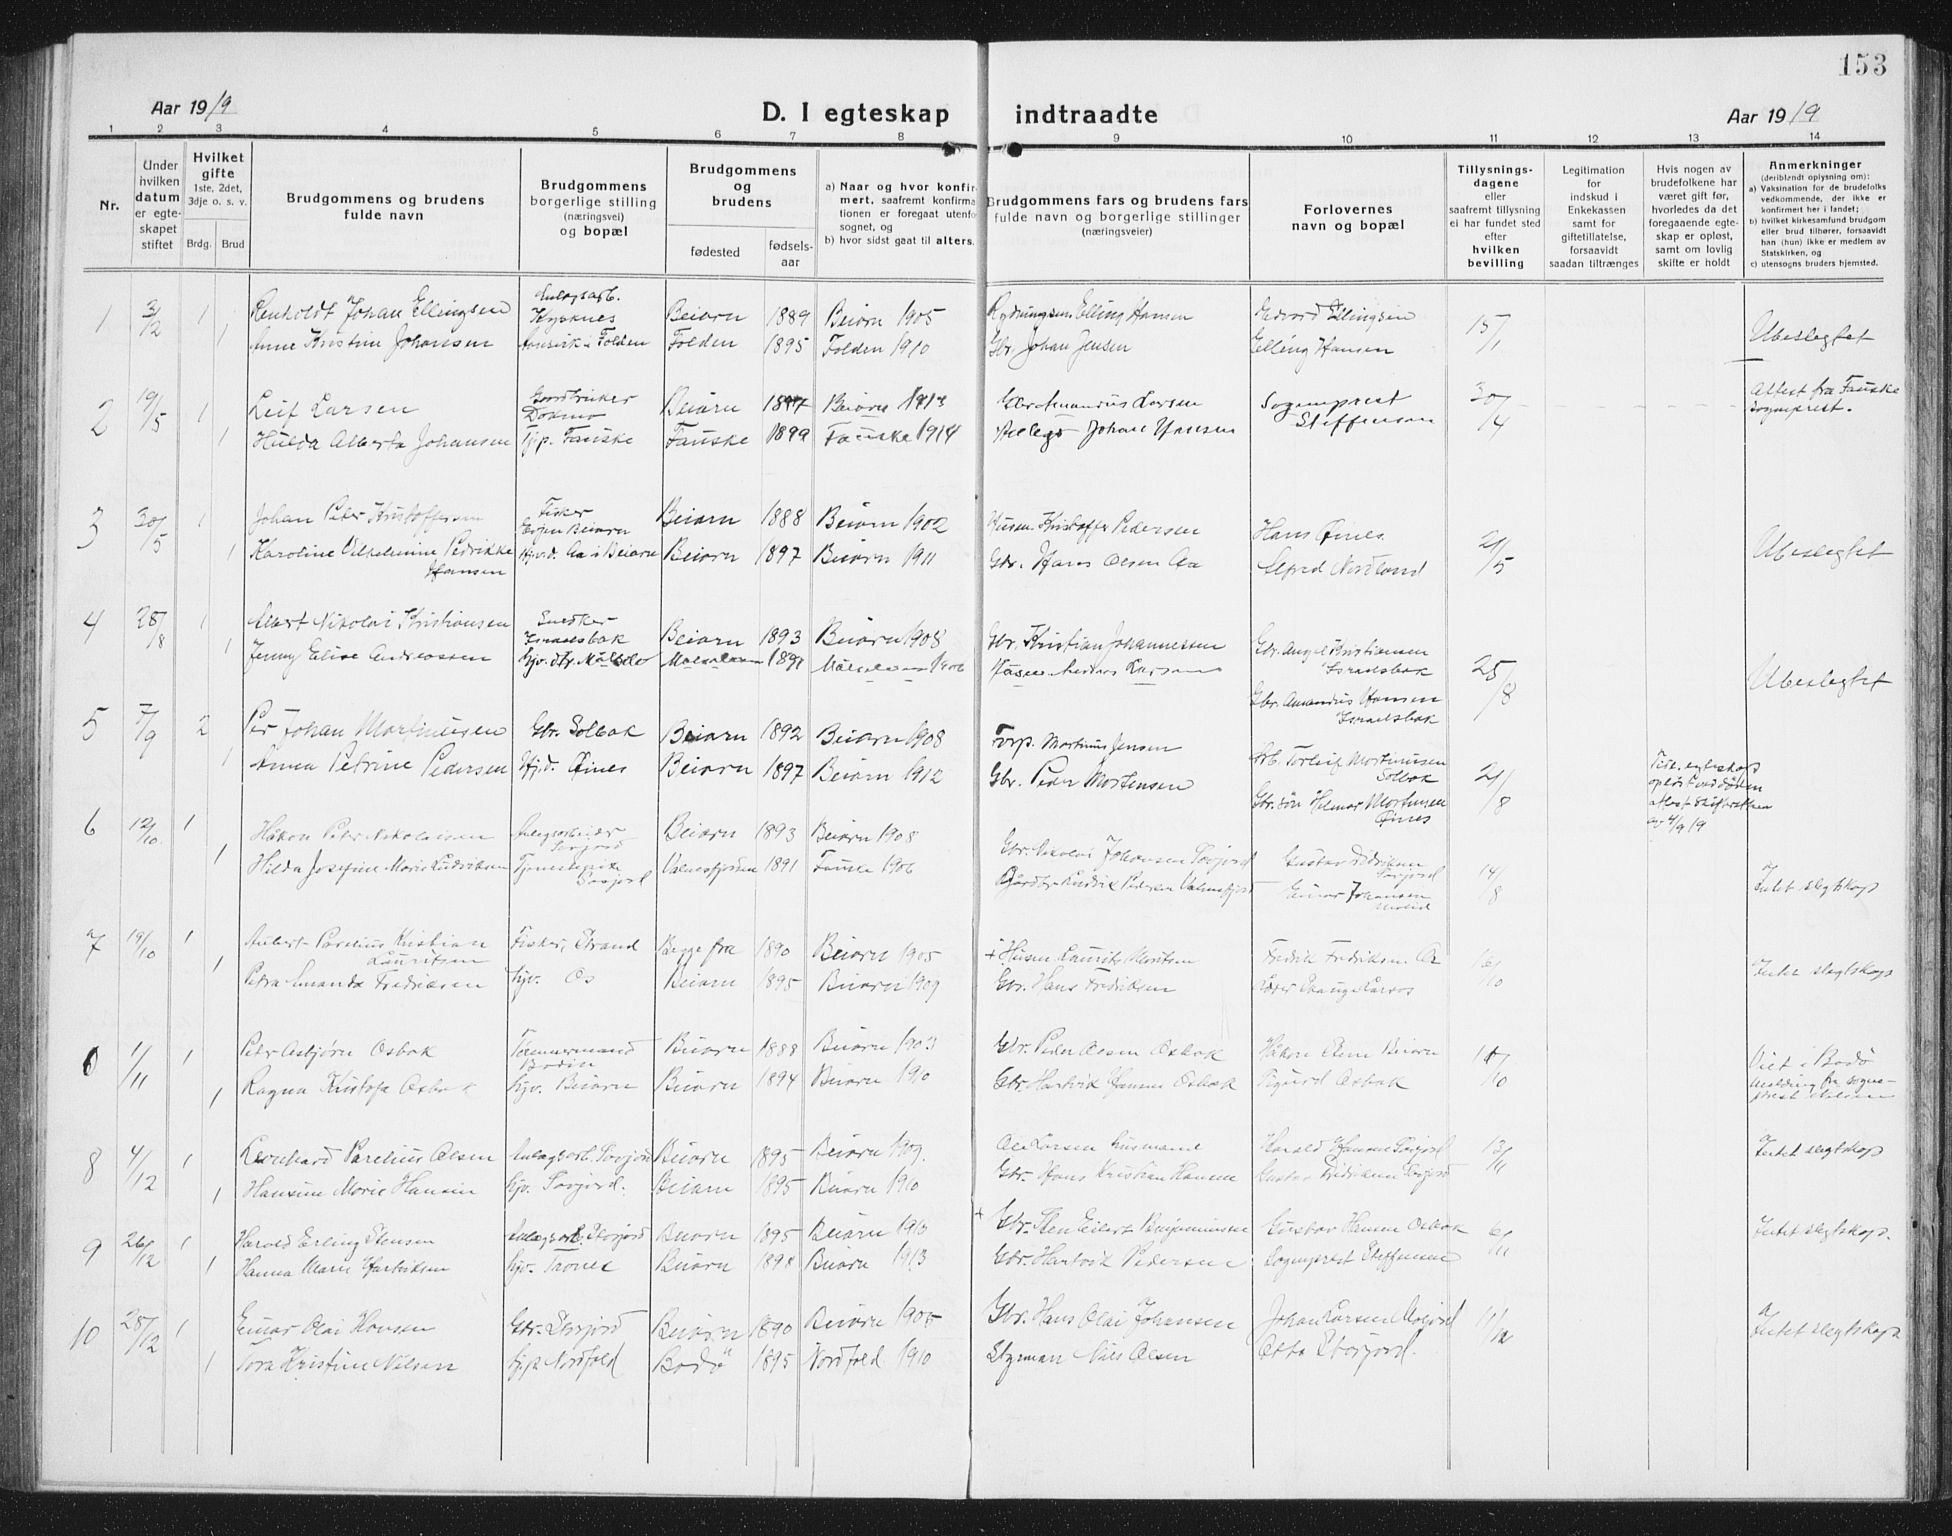 153
Aar 1919
D. I egteskap indtraadte
Aar 1919
1 2 3 4 5 6 7 8 9 10 11 12 13 14
Nr.
Under hvilken datum er egteskapet stiftet
Hvilket gifte 1ste, 2det, 3dje o. s. v.
Brdg. Brud
Brudgommens og brudens fulde navn
Brudgommens borgerlige stilling (næringsvei) og bopæl
Brudgommens og brudens
fødested
fødselsaar
a) Naar og hvor konfirmert, saafremt konfirmationen er foregaat utenfor sognet, og
b) hvor sidst gaat til alters.
Brudgommens fars og brudens fars fulde navn og borgerlige stillinger (næringsveier)
Forlovernes navn og bopæl
Tillysningsdagene eller saafremt tillysning ei har fundet sted efter hvilken bevilling
Legitimation for indskud i Enkekassen samt for giftetillatelse, forsaavidt saadan tiltrænges
Hvis nogen av brudefolkene har været gift før, hvorledes da det foregaaende egteskap er opløst, samt om lovlig skifte er holdt
Anmerkninger
(deriblendt oplysning om):
a) Vaksination for de brudefolks vedkommende, der ikke er konfirmert her i landet;
b) hvilket kirkesamfund brudgom eller brud tilhører, forsaavidt han (hun) ikke er medlem av Statskirken, og
c) utensogns bruders hjemsted.
1 3/12 1 Renholdt Johan Ellingsen Beiarn 1889 Beiarn 1905 Elling Hansen Edvard Ellingsen 15/1 Ubeslegtet
1 Anne Kristine Johansen Folden Folden 1895 Folden 1910 Gbr. Johan Jensen Elling Hansen
2 19/5 1 Leif Larsen Gaardbruker Beiarn 1897 Beiarn 1913 Gbr Amandus Larsen Sogneprest Steffensen 30/4 Attest fra Fauske Sogneprest.
1 Hulda Alberta Johansen Tjp. Fauske Fauske 1899 Fauske 1914 Johan Hansen
3 30/5 1 Johan Peter Kristoffersen Fisker Evjen Beiarn Beiarn 1888 Beiarn 1902 Husm. Kristoffer Pedersen Hans Øines 21/5 Ubeslegtet
1 Karoline Vilhelmine Fedrikke Hansen Hjv.d. Aa i Beiarn Beiarn 1897 Beiarn 1911 Gbr. Hans Olsen Aa Alfred Nordland
4 28/8 1 Albert Nikolai Kristiansen Snedker Israelsbak Beiarn 1893 Beiarn 1908 Gbr. Kristian Johannessen Gbr. Angel Kristiansen Israelsbak 25/8 Ubeslegtet
1 Jenny Elise Andreassen Målselven Målselven 1906 Larsen Gbr. Amandus Hansen Israelsbak
5 7/9 2 Per Johan Martinussen Gbr. Solbak Beiarn 1892 Beiarn 1908 Forp. Martinus Jensen Torleif Martinussen Solbak 21/8 opløst ved døden
1 Anna Petrine Pedersen Hjd. Øines Beiarn 1897 Beiarn 1912 Gbr. Peder Mortensen Gbr. søn Helmer Mortensen Øines 4/9 19
6 12/10 1 Håkon Petr Nikolaisen Anlegsarbeider Beiarn 1893 Beiarn 1908 Gbr. Nikolai Johansen Gustav Fredriksen 14/8 Intet slegtskap
1 Hilda Josefine Marie Ludviksen Valnesfjorden 1891 Fauske 1906 Ludvik Pedersen Valnesfjord Einar Johansen
7 19/10 1 Aubert Parelius Kristian Lauritsen Fisker, Strand Begge fra 1890 Beiarn 1905 + Husm. Laurits Moritsen Fredrik Fredriksen 16/10 Intet slegtskap
1 Petra Amanda Fredriksen Hjv. Os Beiarn 1895 Beiarn 1909 Gbr. Hans Fredriksen
1/11 1 Petr Asbjørn Osbak Tømmermand Bodin Beiarn 1888 Beiarn 1903 Gbr. Peder Olsen Osbak Håkon Beiarn /10 Viet i Bodø
1 Ragna Kristofa Osbak Hjv. Beiarn Beiarn 1894 Beiarn 1910 Gbr. Hartvik Hansen Osbak Sigurd Osbak Melding fra sogneprest Nilsen
8 4/12 1 Leonhard Parelius Olsen Beiarn 1895 Beiarn 1909 Ole Larsen Husmand Harald Hansen 13/11 Intet slegtskap
1 Hansine Marie Hansen Beiarn 1895 Beiarn 1910 Gbr. Hans Kristian Hansen Gustav Fredriksen
9 26/12 1 Harald Erling Stensen Anlegsarb. Storjord Beiarn 1895 Beiarn 1910 + Gbr. Sten Eilert Benjaminsen Gustav Hansen Osbak 6/11 Intet slegtskap.
1 Hanna Marie Hartviksen Hjv. Trones Beiarn 1898 Beiarn 1913 Gbr. Hartvik Pedersen Sogneprest Steffensen
10 28/12 1 Einar Olai Hansen Gbr. Storjord Beiarn 1890 Beiarn 1905 Gbr. Hans Olai Johansen Johan Larsen 11/12 Intet slegtskap
1 Tora Kristine Nilsen Hjp. Nordfold Bodø 1895 Nordfold 1910 Styrman Nils Olsen Otto Storjord.